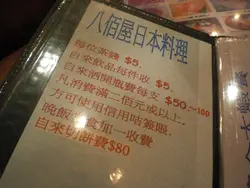 八佰屋日本料理
每位茶錢 $5.
自來飲品每件收 $5.
自來酒開瓶費每支 $50~100
凡消費滿二佰元或以上,
方可使用信用咭簽賬.
晚飯 食加一收費
自來切餅費$80